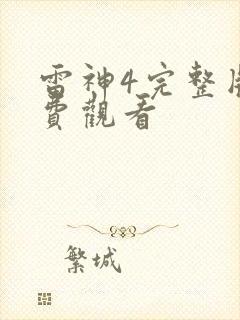 雷神4完整
費觀看
繁城